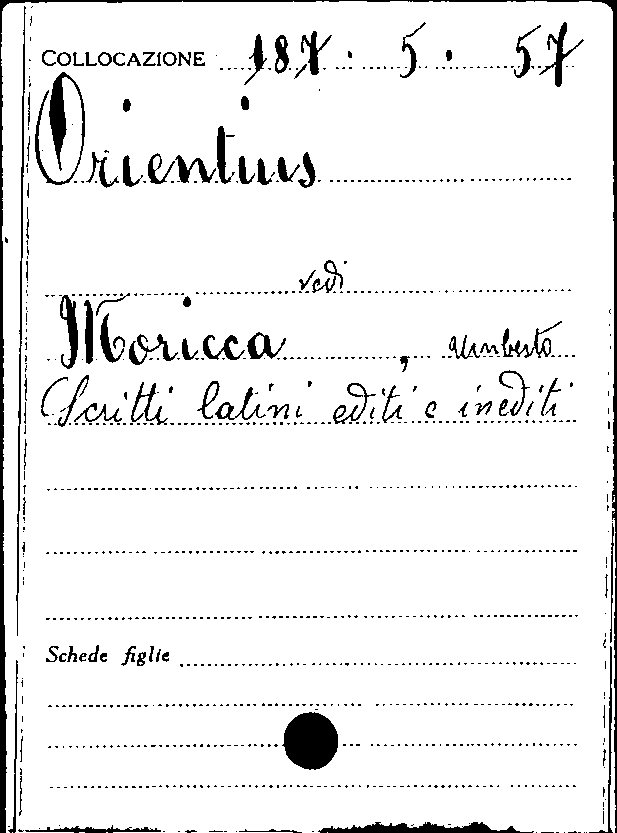 COLLOCAZIONE 187. 5. 57
Orientius
vedi
Moricca, Umberto
Scritti latini editi e inediti
Schede figlie